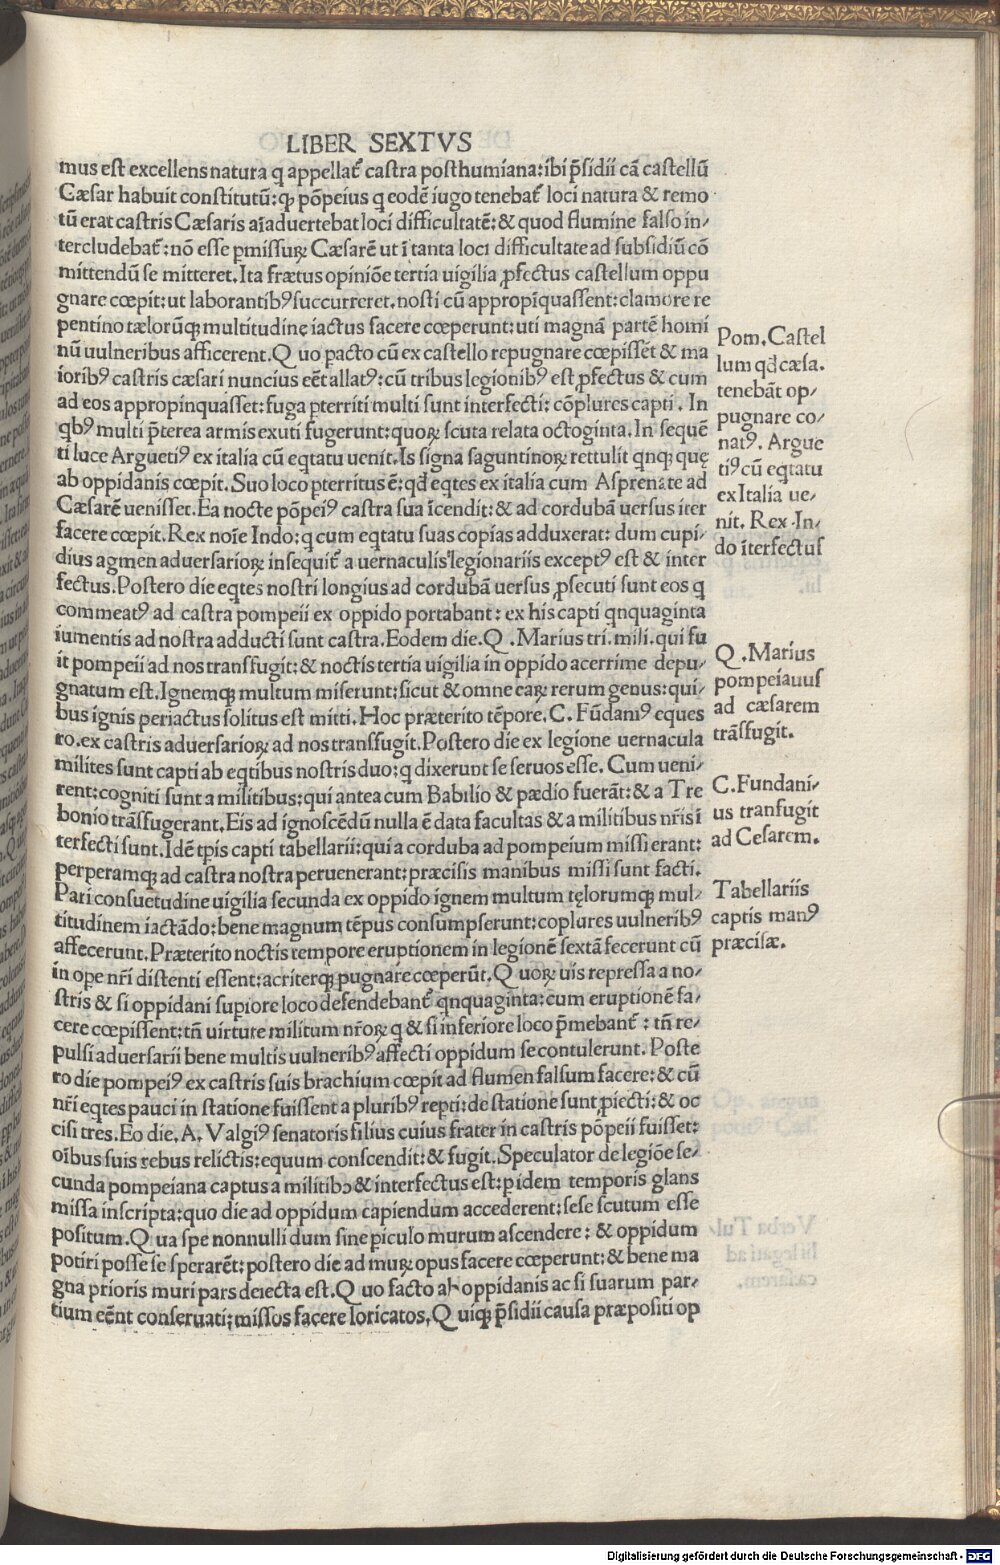 LIBER SEXTVS
mus est excellens natura q appellat᷑ castra posthumiana:ibi p̄sidii cā castellū
Cæsar habuit constitutū:qꝫ pōpeius q eodē iugo tenebat᷑ loci natura & remo
tū erat castris Cæsaris aīaduertebat loci difficultatē:& quod flumine falso in/
tercludebat᷑:nō esse pmissuꝝ Cæsarē ut ī tanta loci difficultate ad subsidiū cō
mittendū se mitteret.Ita frætus opiniōe tertia uigilia ꝓfectus castellum oppu
gnare cœpit:ut laborantibꝰ succurreret.nosti cū appropīquassent:clamore re
pentino tælorūqꝫ multitudine iactus facere cœperunt:uti magnā partē homi
nū uulneribus afficerent.Q uo pacto cū ex castello repugnare cœpissēt & ma
ioribꝰ castris cæsari nuncius eēt allatꝰ:cū tribus legionibꝰ est ꝓfectus & cum
ad eos appropinquasset:fuga pterriti multi sunt interfecti: cōplures capti . In
qbꝰ multi p̄terea armis exuti fugerunt:quoꝝ scuta relata octoginta.In sequē
ti luce Arguetiꝰ ex italia cū eqtatu uenit.Is signa saguntinoꝝ rettulit qnqꝫ quę
ab oppidanis cœpit.Suo loco pterritus ē:qd eqtes ex italia cum Asprenate ad
Cæsarē uenisset.Ea nocte pōpeiꝰ castra sua īcendit:& ad cordubā uersus iter
facere cœpit.Rex noīe Indo:q cum eqtatu suas copias adduxerat: dum cupi/
dius agmen aduersarioꝝ insequit᷑ a uernaculis legionariis exceptꝰ est & inter
fectus.Postero die eqtes nostri longius ad cordubā uersus ꝓsecuti sunt eos q
commeatꝰ ad castra pompeii ex oppido portabant: ex his capti qnquaginta
iumentis ad nostra adducti sunt castra.Eodem die.Q .Marius tri.mili.qui fu
it pompeii ad nos transfugit:& noctis tertia uigilia in oppido acerrime depu/
gnatum est.Ignemqꝫ multum miserunt:sicut & omne eaꝝ rerum genus:qui/
bus ignis periactus solitus est mitti.Hoc præterito tēpore.C. Fūdaniꝰ eques
ro.ex castris aduersarioꝝ ad nos transfugit.Postero die ex legione uernacula
milites sunt capti ab eqtibus nostris duo:q dixerunt se seruos esse. Cum ueni/
rent:cogniti sunt a militibus:qui antea cum Babilio & pædio fuerāt:& a Tre
bonio trāsfugerant.Eis ad ignoscēdū nulla ē data facultas & a militibus nr̄is ī
terfecti sunt.Idē tp̄is capti tabellarii:qui a corduba ad pompeium missi erant:
perperamqꝫ ad castra nostra peruenerant:præcisis manibus missi sunt facti.
Pari consuetudine uigilia secunda ex oppido ignem multum tęlorumqꝫ mul/
titudinem iactādo:bene magnum tēpus consumpserunt:coplures uulneribꝰ
affecerunt.Præterito noctis tempore eruptionem in legionē sextā fecerunt cū
in ope nr̄i distenti essent:acriterqꝫ pugnare cœperūt.Q uoꝝ uis repressa a no/
stris & si oppidani supiore loco defendebant᷑ qnquaginta:cum eruptionē fa/
cere cœpissent:tn̄ uirtute militum nr̄oꝝ q & si inferiore loco p̄mebant᷑ : tn̄ re/
pulsi aduersarii bene multis uulneribꝰ affecti oppidum se contulerunt. Poste
ro die pompeiꝰ ex castris suis brachium cœpit ad flumen falsum facere:& cū
nr̄i eqtes pauci in statione fuissent a pluribꝰ repti:de statione sunt ꝓiecti:& oc
cisi tres.Eo die.A.Valgiꝰ senatoris filius cuius frater in castris pōpeii fuisset:
oībus suis rebus relictis:equum conscendit:& fugit.Speculator de legiōe se/
cunda pompeiana captus a militibꝰ & interfectus est:pidem temporis glans
missa inscripta:quo die ad oppidum capiendum accederent:sese scutum esse
positum.Q ua spe nonnulli dum sine piculo murum ascendere: & oppidum
potiri posse se sperarēt:postero die ad muꝝ opus facere cœperunt:& bene ma
gna prioris muri pars deiecta est.Q uo facto ab oppidanis ac si suarum par/
tium eēnt conseruati:missos facere loricatos.Q uiqꝫ p̄sidii causa præpositi op
Pom.Castel
lum qd cæsa.
tenebāt op/
pugnare co/
natꝰ. Argue
tiꝰ cū eqtatu
ex Italia ue/
nit. Rex In/
do īterfectus
Q .Marius
pompeiauus
ad cæsarem
trāsfugit.
C.Fundani/
us tranfugit
ad Cesarem.
Tabellariis
captis manꝰ
præcisæ.
Digitalisierung gefördert durch die Deutsche Forschungsgemeinschaft - DFG